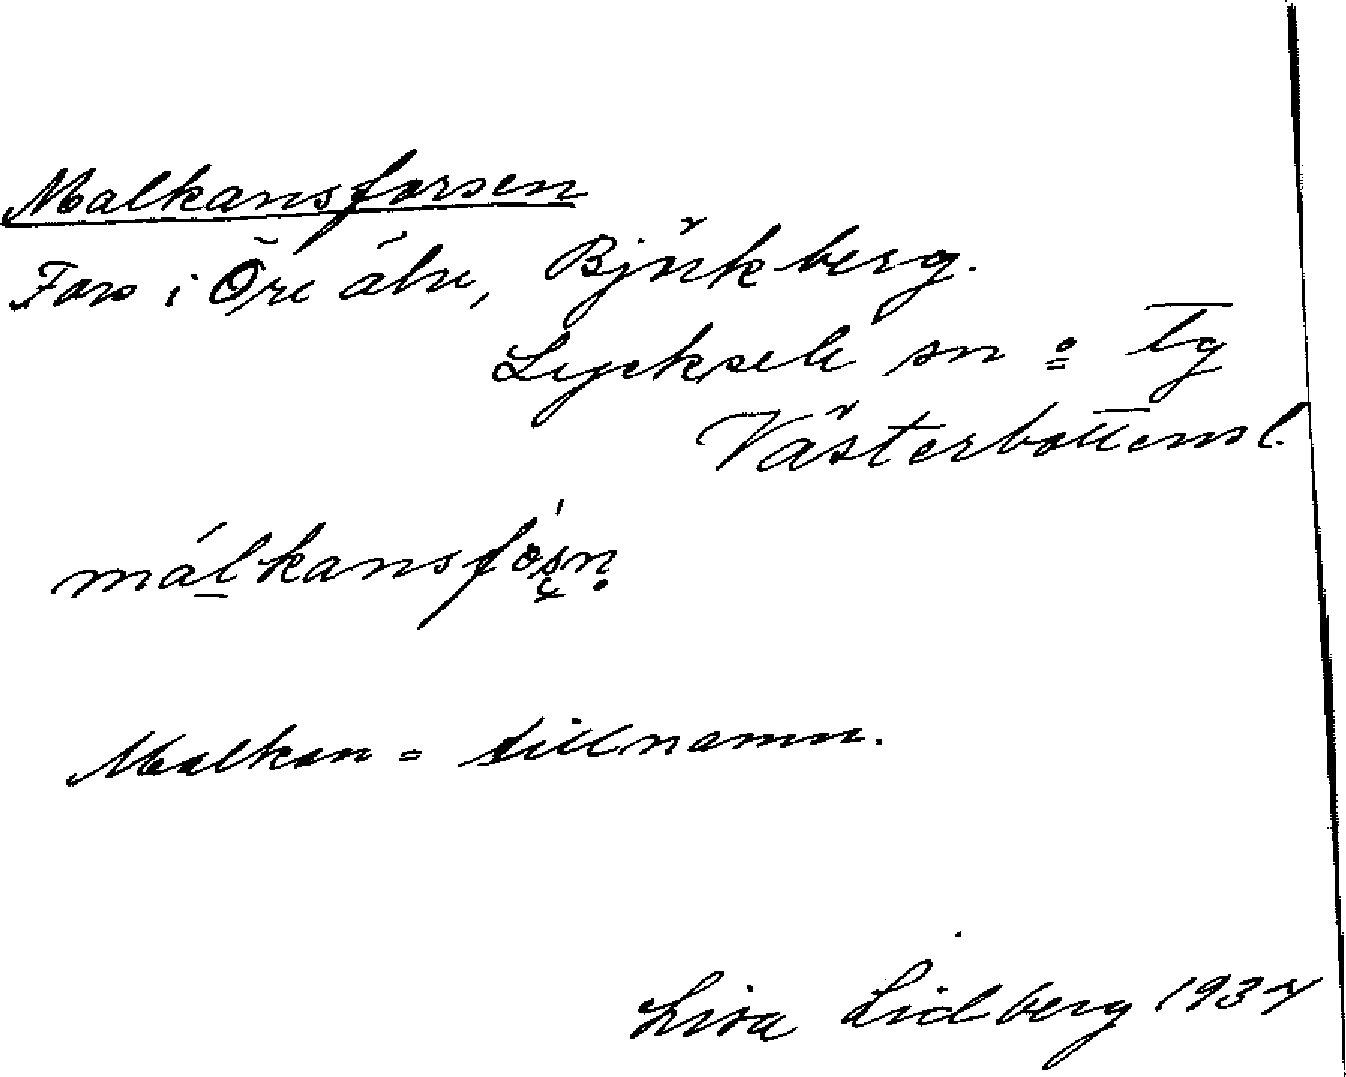 Malkansforsen
Fors i Öre älv, Björkberg.
Lycksele sn o tg
Västerbottens l.
málkansfósn
Malkan = tillnamn.
Lisa Lidberg 1937